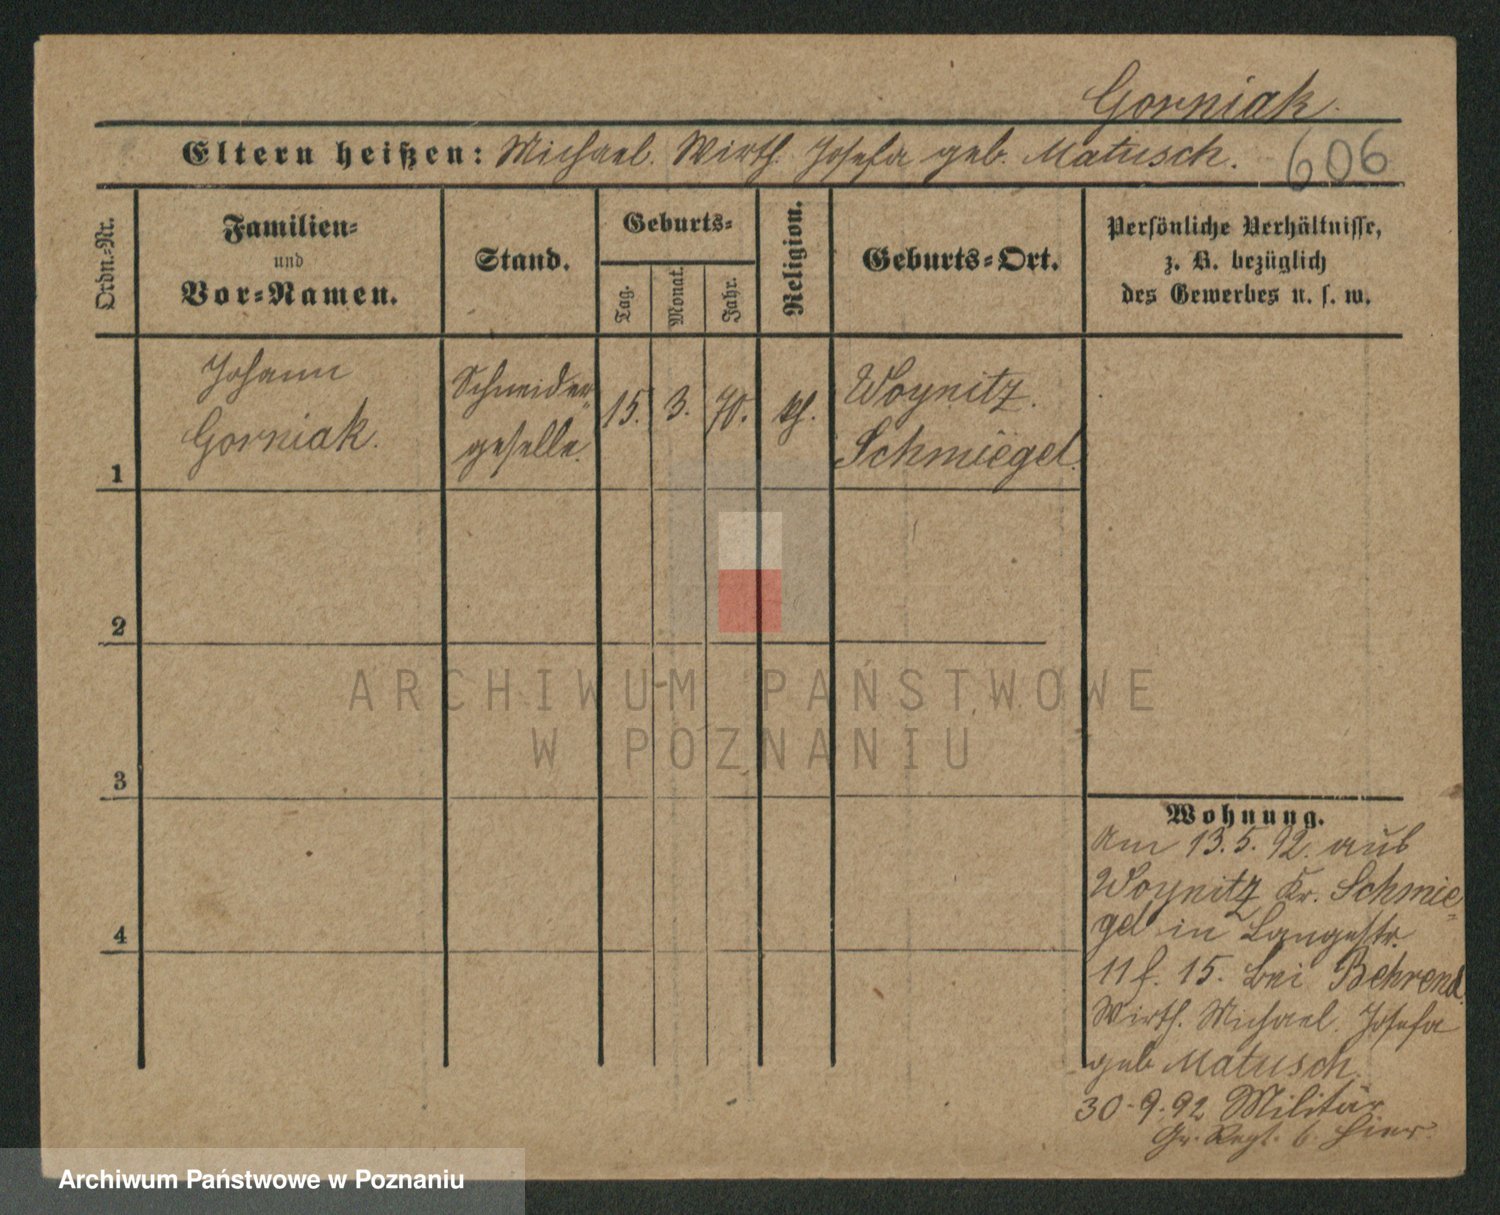 Gorniak.
Eltern heißen: Michael. Wirth. Josefa geb. Matusch.
606
Ordn.-Nr.
Familien-
und
Vor-Namen.
Stand.
Geburts-
Tag.
Monat.
Jahr.
Religion.
Geburts-Ort.
Persönliche Verhältnisse,
z. B. bezüglich
des Gewerbes u. s. w.
1
Johann
Gorniak.
Schneider-
geselle.
15.
3.
70.
kh.
Woynitz.
Schmiegel.
2
3
4
Wohnung.
Am 13.5.92. aus
Woynitz Kr. Schmie-
gel in Langestr.
11 f. 15. bei Behrend.
Wirth. Michael. Josefa
geb Matusch.
30.9.92 Militär
Gr. Regt. 6. hier.
ARCHIWUM PAŃSTWOWE
W POZNANIU
Archiwum Państwowe w Poznaniu